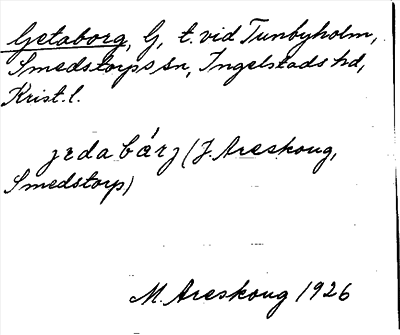 Getaborg, G, t. vid Tunbyholm,
Smedstorps sn, Ingelstads hd,
Krist. l.
jedabárj (J. Areskoug,
Smedstorp)
M. Areskoug 1926